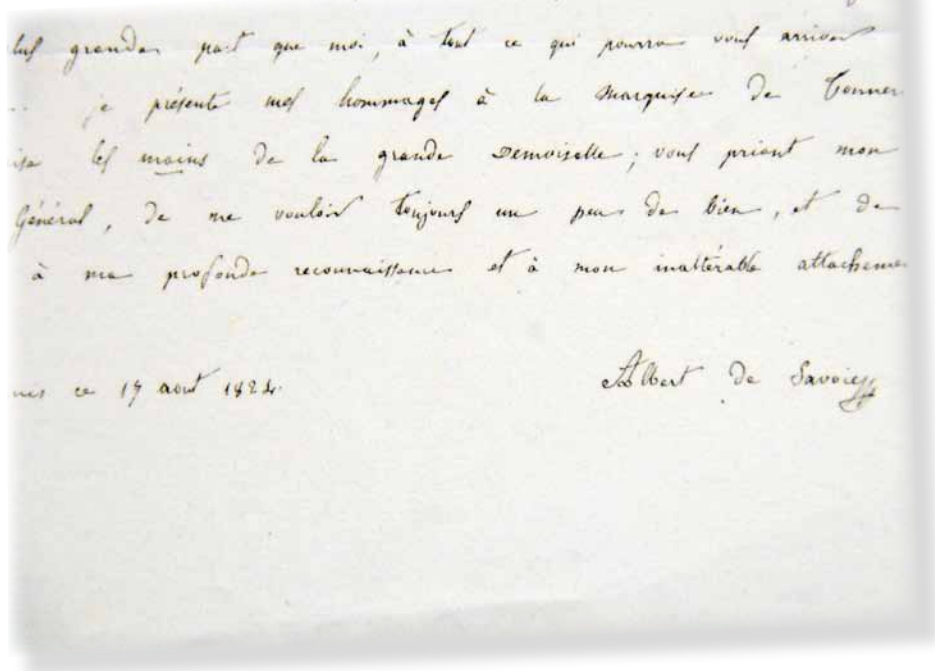 plus grande part que moi, à tout ce qui pourra vous arriver
je présente mes hommages à la Marquise De Tonner
les mains De la grande Demoiselle; vous priant mon
Général, De me vouloir toujours un peu De bien, et De
à ma profonde reconnaissance et à mon inaltérable attacheme
ce 17 aout 1824.
Albert De Savoie